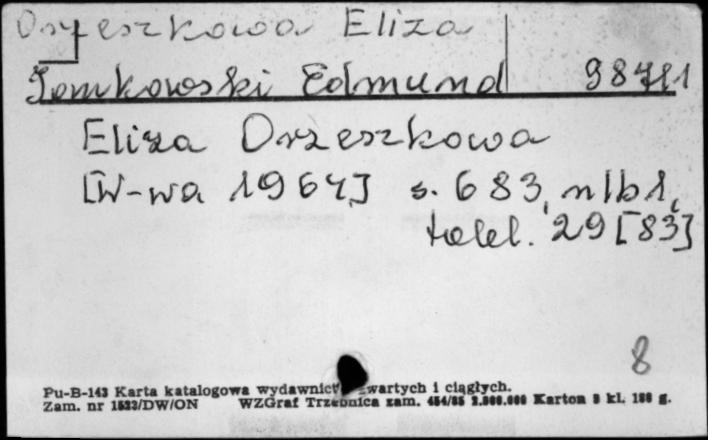 Orzeszkowa Eliza
Jankowski Edmund 98781
Eliza Orzeszkowa
[W-wa 1964] s. 683, nlb 1,
tabl. 29 [83]
8
Pu-B-143 Karta katalogowa wydawnict zwartych i ciągłych.
Zam. nr 1523/DW/ON WZGraf Trzebnica zam. 454/85 2.000.000 Karton 8 kl. 180 g.